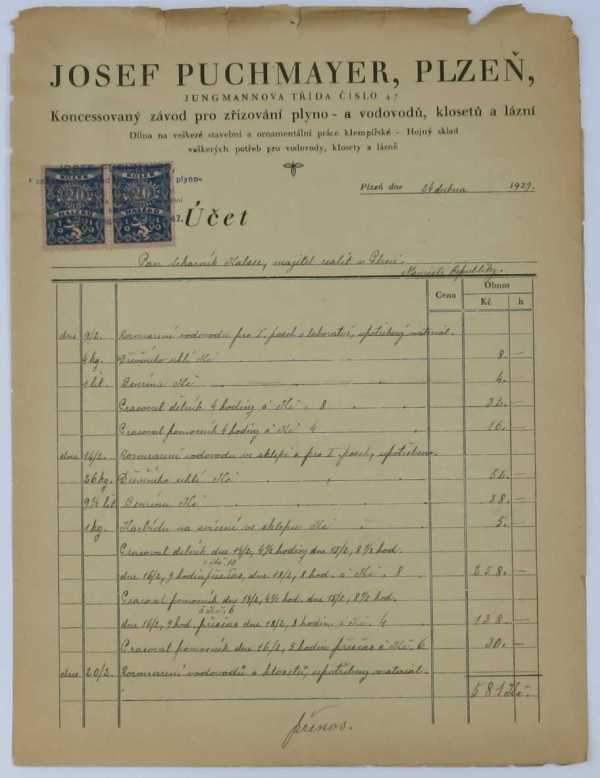 JOSEF PUCHMAYER, PLZEŇ,
JUNGMANNOVA TŘÍDA ČÍSLO 47
Koncessovaný závod pro zřizování plyno- a vodovodů, klosetů a lázní
Dílna na veškeré stavební a ornamentální práce klempířské – Hojný sklad
veškerých potřeb pro vodovody, klosety a lázně
KOLEK KOLEK
20 20
HALÉŘŮ HALÉŘŮ
plyno-
47.
Plzeň dne dubna 1929.
Účet
Pan lékárník majitel realit v Plzni
Náměstí Republiky.
Cena Obnos
Kč h
dne 9/2. Rozmrazení vodovodu pro I. posch. a laboratoř, upotřebený materiál.
4 kg. Dřevěného uhlí Kč 8.—
1 lit. Benzinu Kč 4.—
Pracoval dělník 4 hodiny à Kč 8 32.—
Pracoval pomocník 4 hodiny à Kč 4 16.—
dne 14/2. Rozmrazení vodovodu ve sklepě a pro I. posch., upotřebeno.
26 kg. Dřevěného uhlí Kč 52.—
9½ lit. Benzinu Kč 38.—
1 kg. Karbidu na svícení ve sklepu Kč 5.—
Pracoval dělník dne 14/2, 4½ hodiny dne 15/2, 8½ hod.
à Kč 12
dne 16/2, 9 hodin přesčas, dne 18/2, 8 hod. à Kč 8 258.—
Pracoval pomocník dne 14/2, 4½ hod. dne 15/2, 8½ hod.
à Kč 6
dne 16/2, 9 hod. přesčas dne 18/2, 8 hodin à Kč 4 138.—
Pracoval pomocník dne 16/2, 5 hodin přesčas à Kč 6 30.—
dne 20/2. Rozmrazení vodovodů a klosetů, upotřebený materiál.
581 Kč.
přenos.